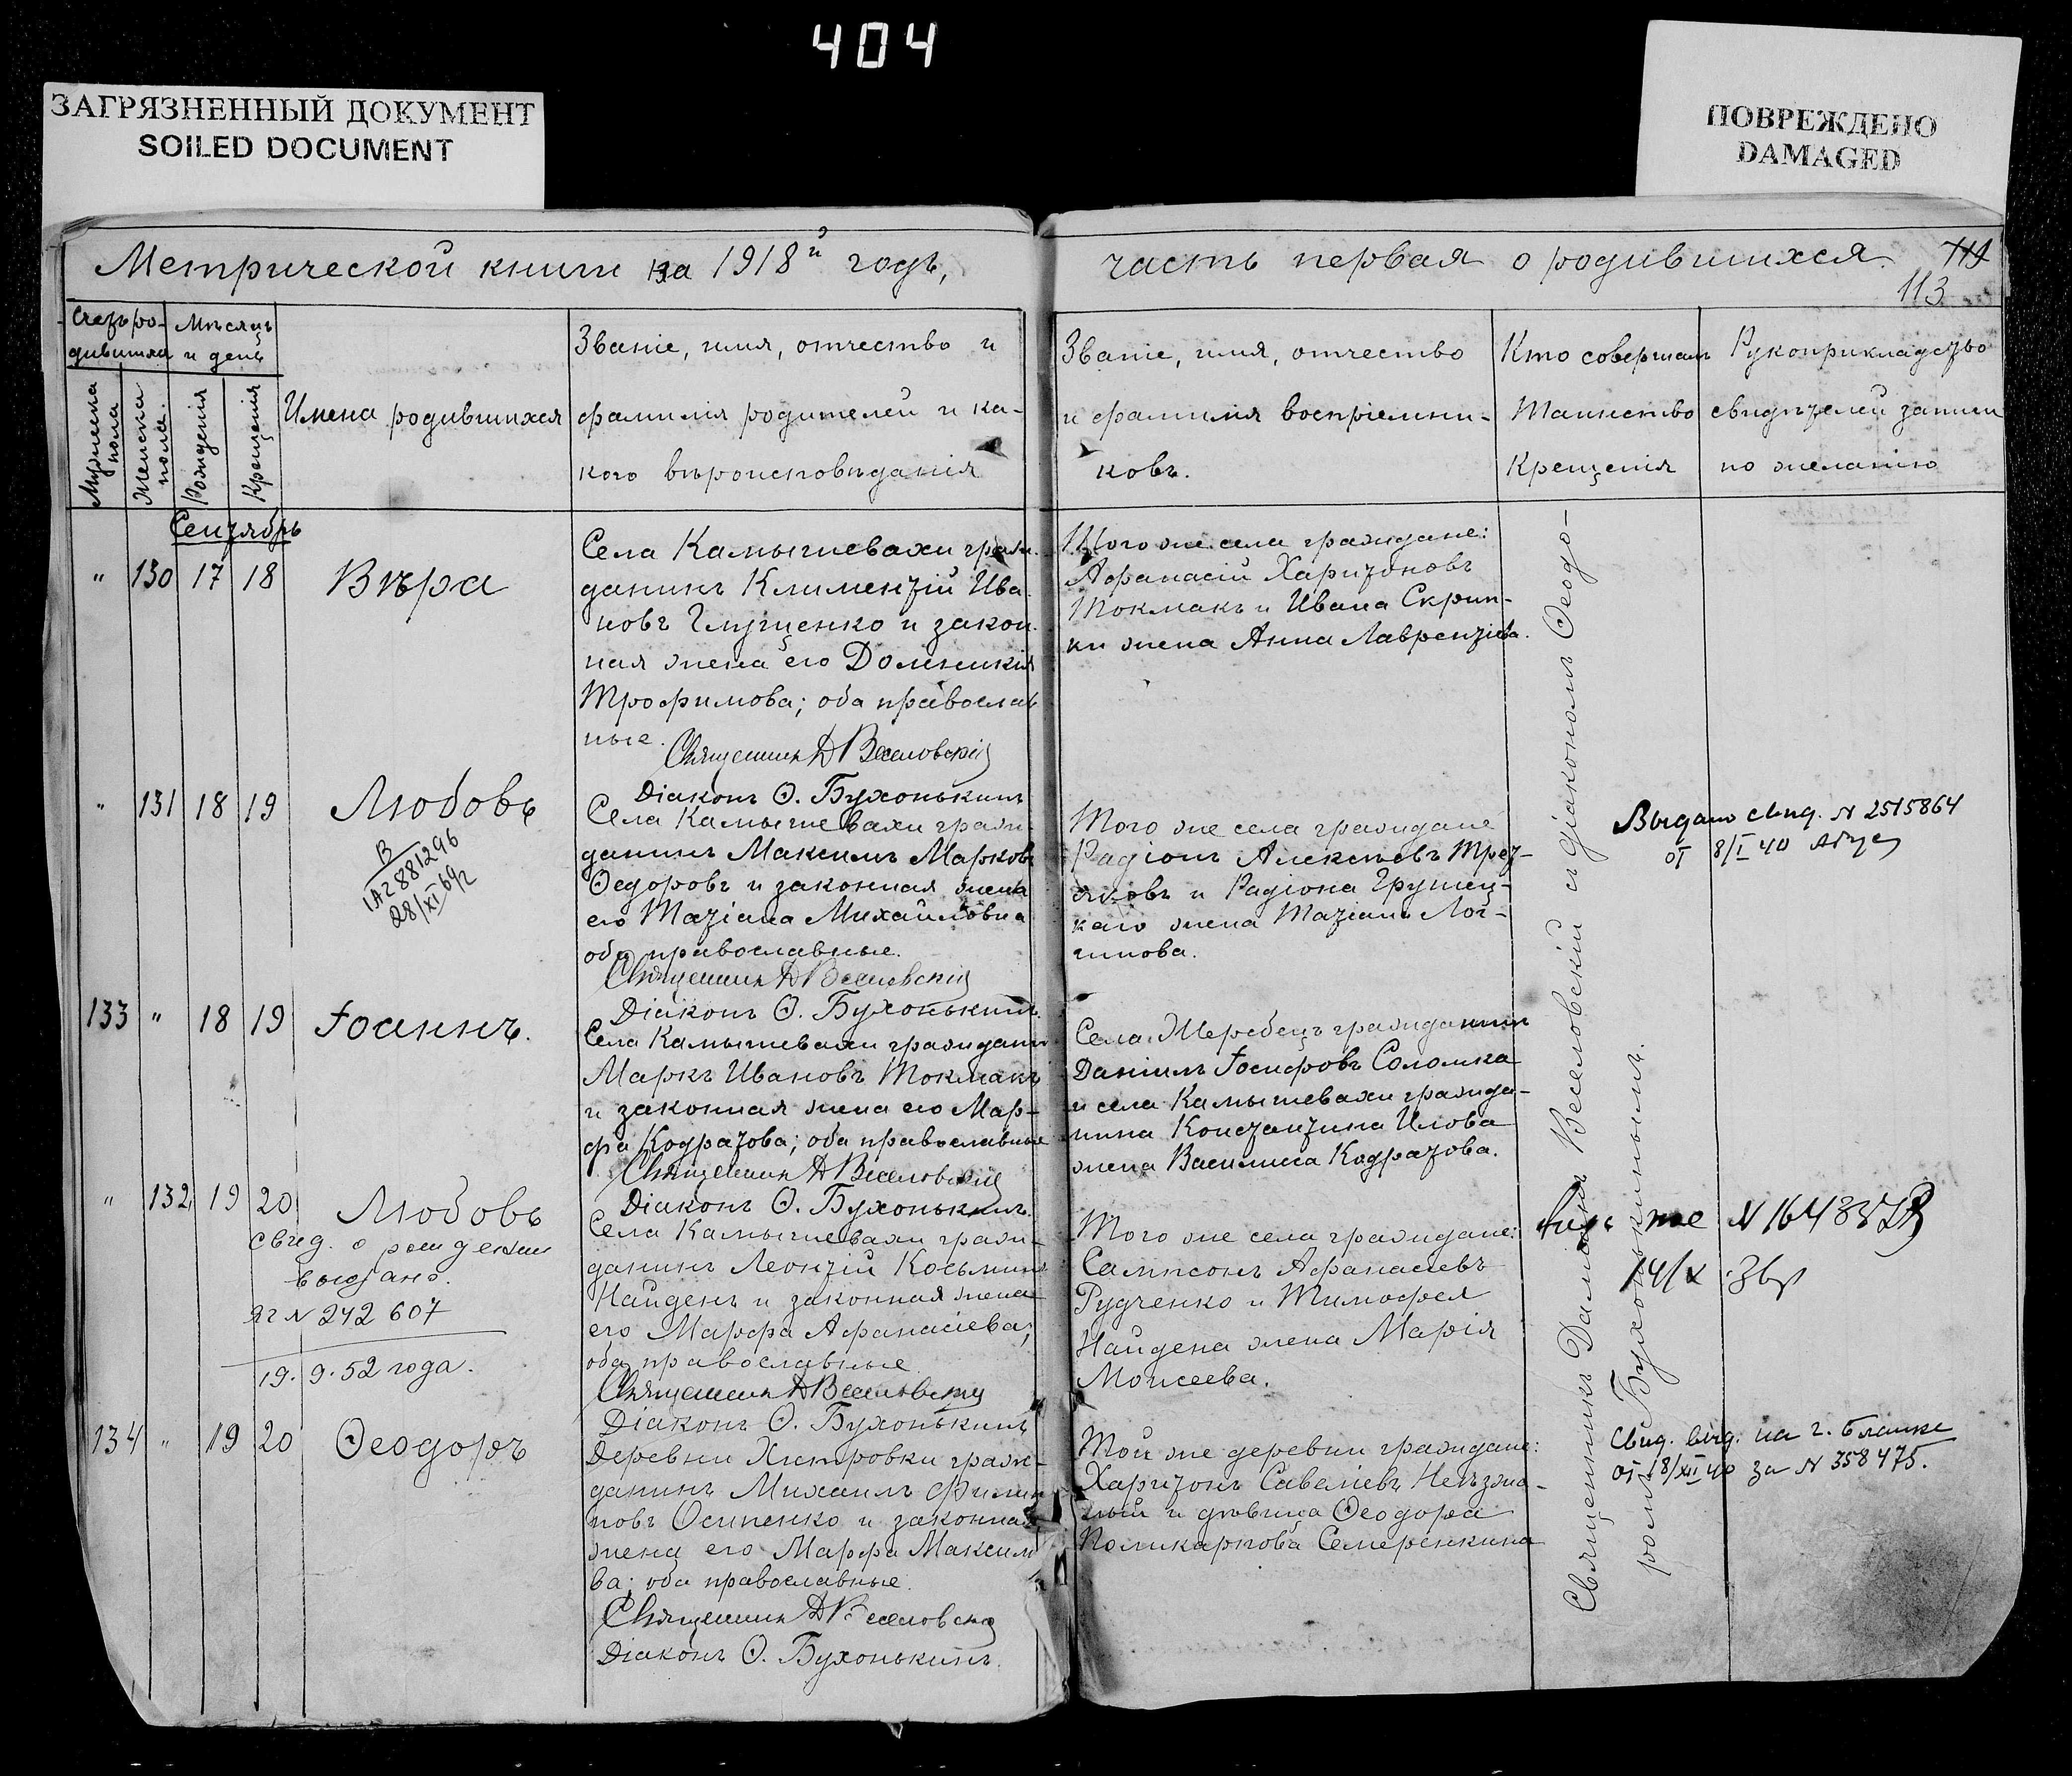 404
ЗАГРЯЗНЕННЫЙ ДОКУМЕНТ
SOILED DOCUMENT
ПОВРЕЖДЕНО
DAMAGED
Метрической книги на 1918й годъ,
часть первая о родившихся.
113
Счетъ ро-
дившихся
Мѣсяцъ
и день
Мужеска
пола
Женска
пола.
Рожденія
Крещенія
Имена родившихся
Званіе, имя, отчество и
фамилія родителей и ка-
кого вѣроисповѣданія
Званіе, имя, отчество
и фамилія воспріемни-
ковъ.
Кто совершалъ
Таинство
Крещенія
Рукоприкладство
свидѣтелей записи
по желанію
Сентябрь
" 130 17 18 Вѣра
Села Камышевахи граж-
данинъ Климентій Ива-
новъ Глущенко и закон-
ная жена его Домникія
Трофимова; оба православ
ные.
Священникъ Д Веселовскій
Діаконъ Ѳ. Бухонькинъ
Того же села граждане:
Афанасій Харитоновъ
Токмакъ и Ивана Скрип-
ки жена Анна Лаврентіева.
" 131 18 19 Любовь
В
28/XI 69г
Села Камышевахи граж-
данинъ Максимъ Марковъ
Ѳедоровъ и законная жена
его Татіана Михайловна
оба православные.
Священникъ Д Веселовскій
Діаконъ Ѳ. Бухонькинъ.
Того же села граждане
Радіонъ Алексѣевъ Трет-
яковъ и Радіона Грушец-
каго жена Татіана Лог-
гинова.
Выдано свид. N 2515864
от 8/I 40
133 " 18 19 Іоаннъ.
Села Камышевахи гражданинъ
Маркъ Ивановъ Токмакъ
и законная жена его Мар-
фа Кодратова; оба православные
Священникъ Д Веселовскій
Діаконъ Ѳ. Бухонькинъ.
Села Жеребецъ гражданинъ
Даніилъ Іосифовъ Соломка
и села Камышевахи гражда-
нина Константина
жена Василиса Кодратова.
" 132 19 20 Любовь
свид. о рождении
выдано.
N 242 607
19. 9. 52 года.
Села Камышевахи граж-
данинъ Леонтій Косьминъ
Найденъ и законная жена
его Марфа Афанасіева;
оба православные
Священникъ Д Веселовскій
Діаконъ Ѳ. Бухонькинъ
Того же села граждане:
Сампсонъ Афанасіевъ
Рудченко и Тимофея
Найдена жена Марія
Моисеева.
14/X
134 " 19 20 Ѳеодоръ
Деревни Хитровки граж-
данинъ Михаилъ Филип
повъ Осипенко и законная
жена его Марфа Максимо
ва; оба православные.
Священникъ Д Веселовскій
Діаконъ Ѳ. Бухонькинъ.
Той же деревни граждане:
Харитонъ Савеліевъ
и дѣвица Ѳеодора
Поликарпова Семеренкина
Свид. выд. на г. бланке
от 8/XII 40 за N 358475.
Священникъ Даміанъ Веселовскій съ діакономъ Ѳеодо-
ромъ Бухонькинымъ.